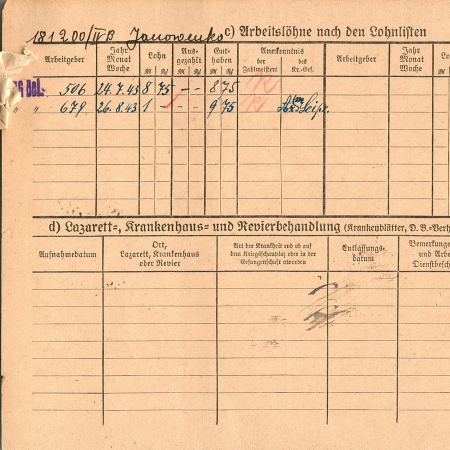 181200/IV B Janowenko c) Arbeitslöhne nach den Lohnlisten
Arbeitgeber Jahr Monat Woche Lohn M ₰ Aus- gezahlt M ₰ Gut- haben M ₰ Anerkenntnis der Zahlmeisterei des Kr.-Gef. Arbeitgeber Jahr Monat Woche Lo M
506 24.7.43 8 75 – – 8 75
" " 679 26.8.43 1 – – – 9 75
d) Lazarett-, Krankenhaus- und Revierbehandlung (Krankenblätter, D. B.-Verh
Aufnahmedatum Ort, Lazarett, Krankenhaus oder Revier Art der Krankheit und ob auf dem Kriegsschauplatz oder in der Gefangenschaft erworben Entlassungs- datum Bemerkunge und Arbe Dienstbesch